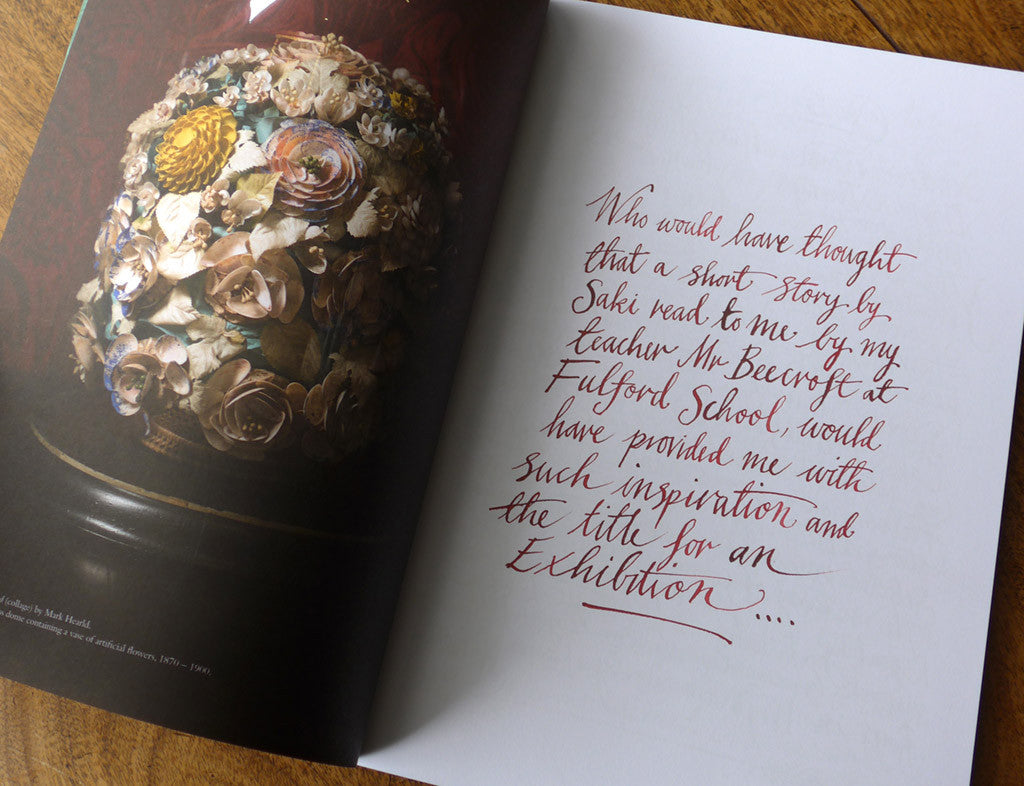 (collage) by Mark Hearld.
dome containing a vase of artificial flowers, 1870 – 1900.
Who would have thought
that a short story by
Saki read to me by my
teacher Mr Beecroft at
Fulford School, would
have provided me with
such inspiration and
the title for an
Exhibition ....